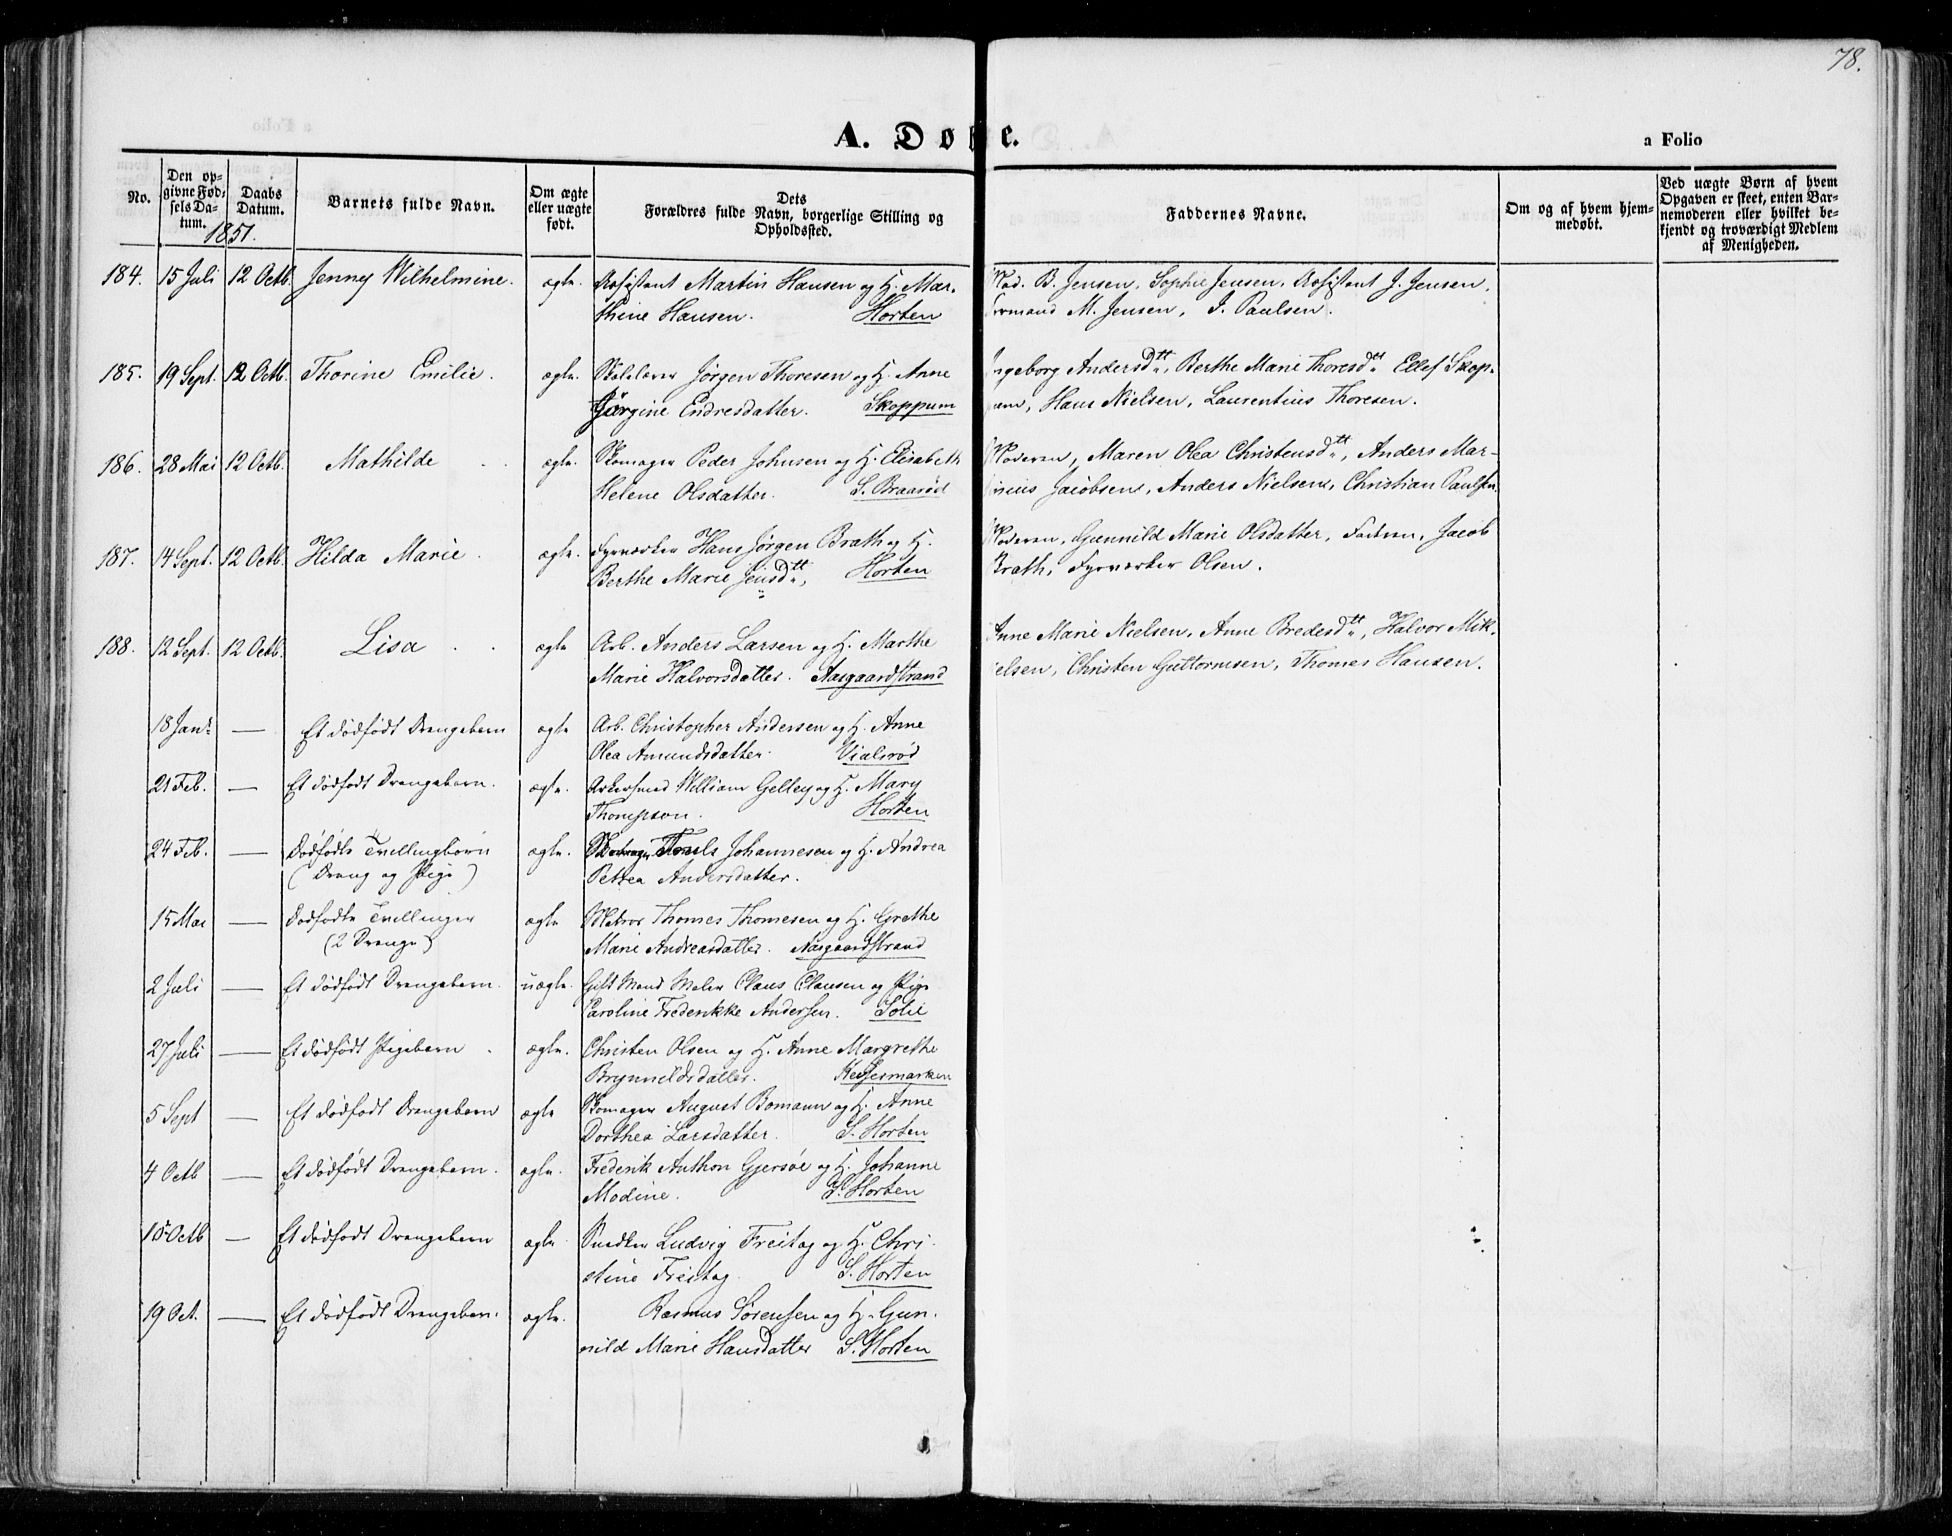 78.
A. Døbe.
a Folio
No.
Den op-
givne Fød-
sels Da-
tum.
Daabs
Datum.
1851.
Barnets fulde Navn.
Om ægte
eller uægte
født.
Dets
Forældres fulde Navn, borgerlige Stilling og
Opholdssted.
Faddernes Navne.
Om og af hvem hjem-
medøbt.
Ved uægte Børn af hvem
Opgaven er skeet, enten Bar-
nemoderen eller hvilket be-
kjendt og troværdigt Medlem
af Menigheden.
184. 15 Juli 12 Octb. Jenney Wilhelmine. ægte. Assistent Martin Hansen og H. Mar- Mad. B. Jensen, Sophie Jensen, Assistent J. Jensen,
thine Hansen. Horten Formand M. Jensen, J. Paulsen.
185. 19 Sept. 12 Octb. Thorine Emilie. ægte. Skolelærer Jørgen Thoresen og H. Anne Ingeborg Andersdtt, Berthe Marie Thoresdtt Ellef Skop-
Jørgine Endresdatter. Skoppum pum, Hans Nielsen, Laurentius Thoresen.
186. 28 Mai 12 Octb. Mathilde ægte. Skomager Peder Johnsen og H. Elisabeth Moderen, Maren Olea Christensdtt, Anders Mar-
Helene Olsdatter. S. Braarød Jacobsen, Anders Nielsen, Christian Paulsen.
187. 14 Sept. 12 Octb. Hilda Marie. ægte. Fyrværker Hans Jørgen Brath og H. Moderen, Gunnild Marie Olsdatter, Faderen, Jacob
Berthe Marie Jensdtt, Horten Brath, Fyrværker Olsen.
188. 12 Sept. 12 Octb. Lisa ægte Arb. Anders Larsen og H. Marthe Anne Marie Nielsen, Anne Bredesdtt, Halvor Mik-
Marie Halvorsdatter. Aasgaardstrand elsen, Christen Guttormsen, Thomes Hansen.
18 Jan. — Et dødfødt Drengebarn ægte Arb. Christopher Andersen og H. Anne
Olea Amundsdatter. Vialsrød
21 Feb. — Et dødfødt Drengebarn. ægte. Ankersmed William Gelley og H. Mary
Thompson. Horten
24 Feb. — Dødfødte Tvillingbørn ægte. Johannesen og H. Andrea
(Dreng og Pige) Petrea Andersdatter.
15 Mai — Dødfødte Tvillinger ægte Matros Thomes Thomesen og H. Grethe
(2 Drenge) Marie Andreasdatter. Aasgaardstrand
2 Juli — Et dødfødt Drengebarn. uægte. Gift Mand Maler Claus Clausen og Pige
Caroline Frederikke Andersen. Solie
27 Juli — Et dødfødt Pigebarn ægte. Christen Olsen og H. Anne Margrethe
Brynnildsdatter.
5 Sept — Et dødfødt Drengebarn ægte Skomager August Bomann og H. Anne
Dorthea Larsdatter. S. Horten
4 Octb — Et dødfødt Drengebarn. ægte. Frederik Anthon Gjersøe og H. Johanne
Modine. S. Horten
15 Octb — Et dødfødt Drengebarn ægte Snedker Ludvig Freitag og H. Chri-
stine Freitag. S. Horten
19 Oct. — Et dødfødt Drengebarn. ægte. Rasmus Sørensen og H. Gun-
nild Marie Hansdatter S. Horten